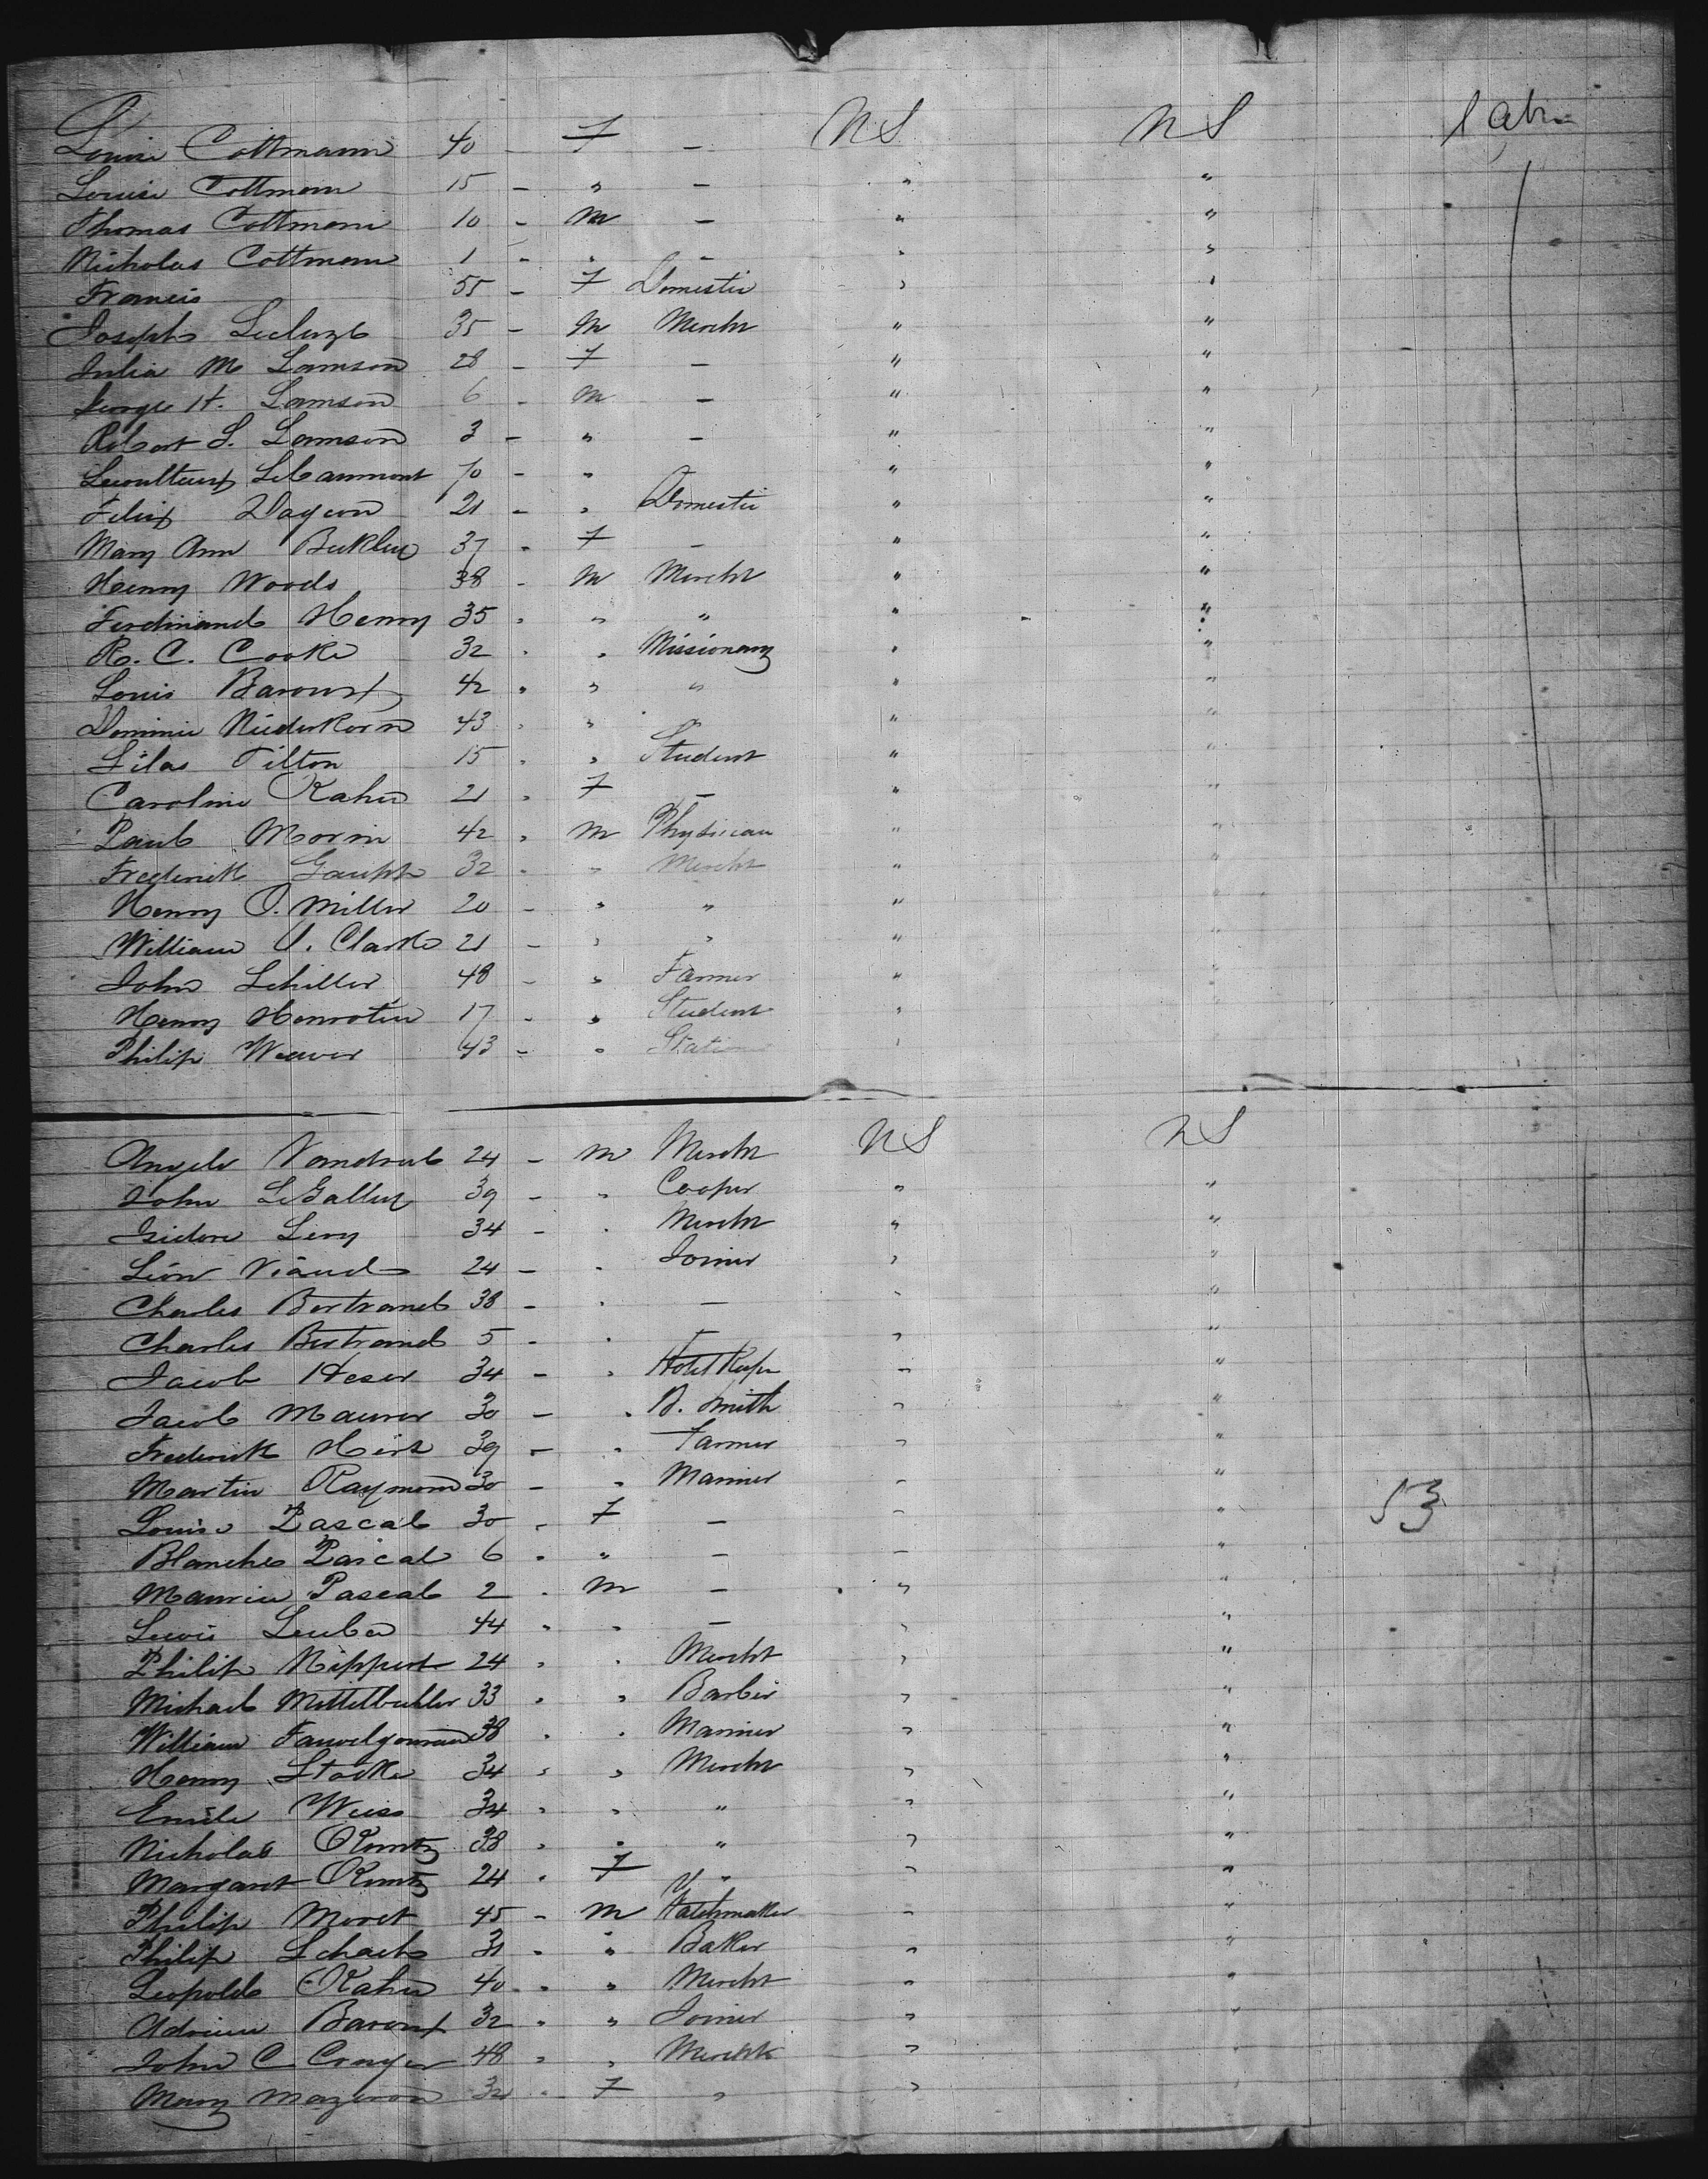 Louise Cottmann 40 - F - US US 1 Cabn
Louise Cottmann 15 - " - " "
Thomas Cottmann 10 - M - " "
Nicholas Cottmann 1 - " - " "
Francis 55 - F Domestic " "
Joseph 35 - M Mercht " "
Julia M Lamson 28 - F - " "
George H. Lamson 6 - M - " "
Robert S. Lamson 3 - " - " "
70 - " - " "
Felix 21 - " Domestic " "
Mary Ann 37 - F - " "
Henry Woods 38 - M Mercht " "
Ferdinand Henry 35 " " " " "
R. C. Cooke 32 " " Missionary " "
Louis Baroux 42 " " " " "
Dominic Niederkorn 43 " " " " "
Silas Tilton 15 " " Student " "
Caroline Kahn 21 " F - " "
Paul Morin 42 " M Physician " "
Frederick 32 " " Mercht " "
Henry O. Miller 20 - " " " "
William A. Clarke 21 - " " " "
John Schiller 48 - " Farmer " "
Henry Henrotin 17 - " Student " "
Philip Weaver 43 - "
Angelo 24 - M Mercht US US
John LeGallez 39 - " Cooper " "
Isidore Levy 34 - " Mercht " "
Léon Viaud 24 - " Joiner " "
Charles Bertrand 38 - " - " "
Charles Bertrand 5 - " - " "
Jacob Heser 34 - " Hotel Keeper " "
Jacob Maurer 30 - " B. Smith " "
Frederick 39 - " Farmer " "
Martin Raymond 30 - " Mariner " "
Louise Pascal 30 - F - " " 53
Blanche Pascal 6 " " - " "
Maurice Pascal 2 " M - " "
Lewis Leuba 44 " " - " "
Philip Nippert 24 " " Mercht " "
Michael Mittelbuhler 33 " " Barber " "
William 38 " " Mariner " "
Henry Stocker 34 " " Mercht " "
Emile Weiss 34 " " " " "
Nicholas Kuntz 38 " " " " "
Margaret Kuntz 24 " F " " "
Philip Moret 45 - M Watchmaker " "
Philip Schach 31 " " Baker " "
Leopold Kahn 40 " " Mercht " "
Adrien Baroux 32 " " Joiner " "
John C Cruger 48 " " Mercht " "
Mary Mazeron 32 " F " " "